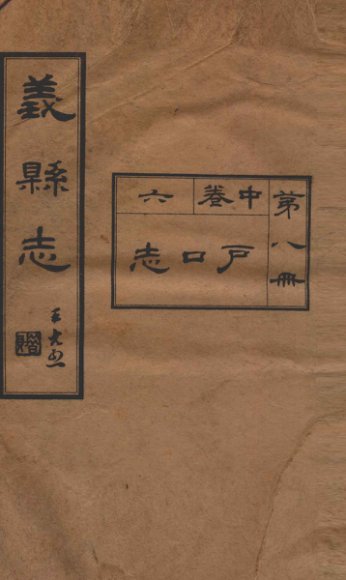 義縣志
第八冊
中卷六
戶口志